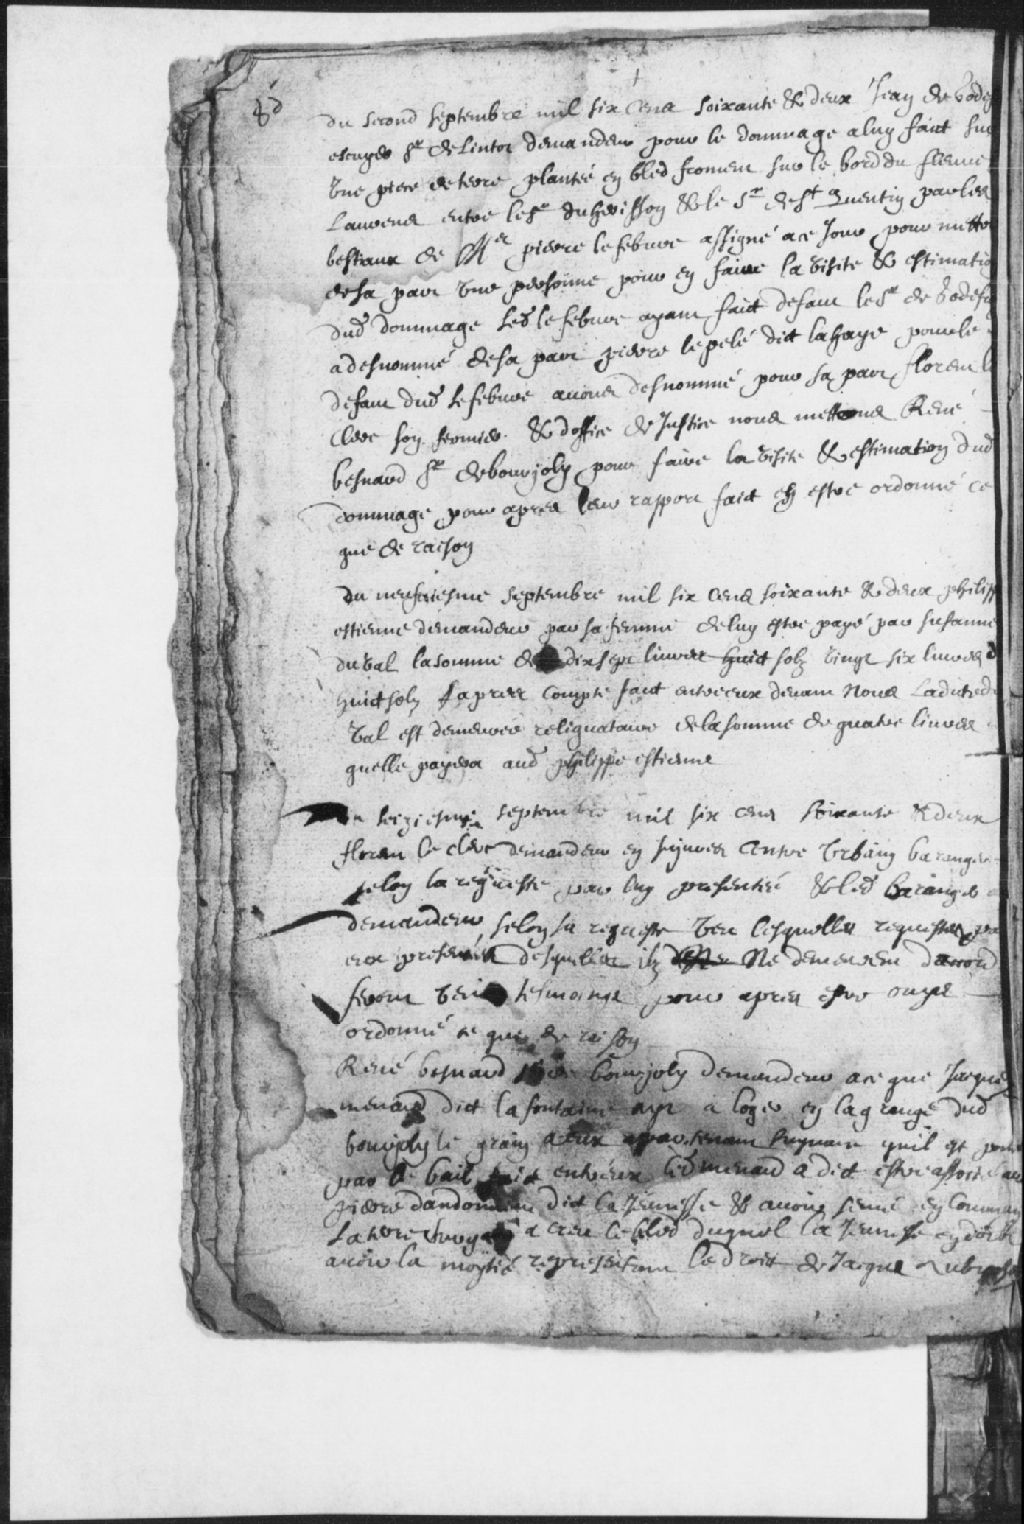 du second septembre mil six cens soixante & deux Jean de Godef
escuyer sr de Lintot demandeur pour le dommage a luy faict sur
Une piece de terre plantée en bled froment sur le bord du fleuve
St Laurens entre le sr du herisson & le sr de st quentin par les
bestiaux de Mre pierre lefebure assigné a ce Jour pour mettre
de sa part Une personne pour en faire la Visite & estimation
dud dommage led lefebure ayant faict defaut le sr de Godef
a desnommé de sa part pierre lepelé dict lahaye pour le
defaut dud lefebure auons desnommé pour sa part floren le
Clerc son fermier & d'office de Justice nous mettons René
besnard sr de bourjoly pour faire la Visite & estimation dud
dommage pour apres leur rapport faict en estre ordonné ce
que de raison
du neufuiesme septembre mil six cens soixante & deux philipp
estienne demandeur par sa femme de luy estre payé par susanne
du Val la somme de dix sept liures huict solz Vingt six liures
huict solz & apres Compte faict entre eux deuant Nous Ladite du
Val est demeurée reliquataire de la somme de quatre liures
quelle payera aud philippe estienne
Du seiziesme septembre mil six cens soixante & deux
floren le clerc demandeur en Injures Contre Urbain baranger
selon la requeste par luy presentée & led baranger
demandeur selon sa requeste Veu lesquelles requestes par
eux presentées desquelles ilz Ne demeurent d'accord
feront Venir tesmoings pour apres estre ouys
ordonné ce que de raison
René besnard sr de bourjoly demandeur a ce que Jacques
menard dict la fontaine ayt a loger en la grange dud
bourjoly le grain a eux appartenant suyuant quil est porté
par le bail faict entr'eux led menard a dict estre assotié auec
pierre dandonneau dict la Jeunesse & auoir semé en Commun
La terre a creu le bled duquel la Jeunesse en doibt
auoir la moytié representant le droict de Jacques Aubuchon